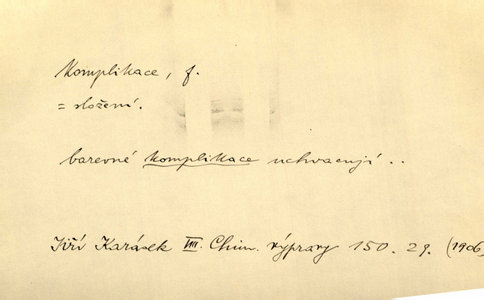 Komplikace, f.
= složení.
barevné komplikace uchvacují ..
Jiří Karásek VIII. Chim. výpravy 150. 29. (1906)